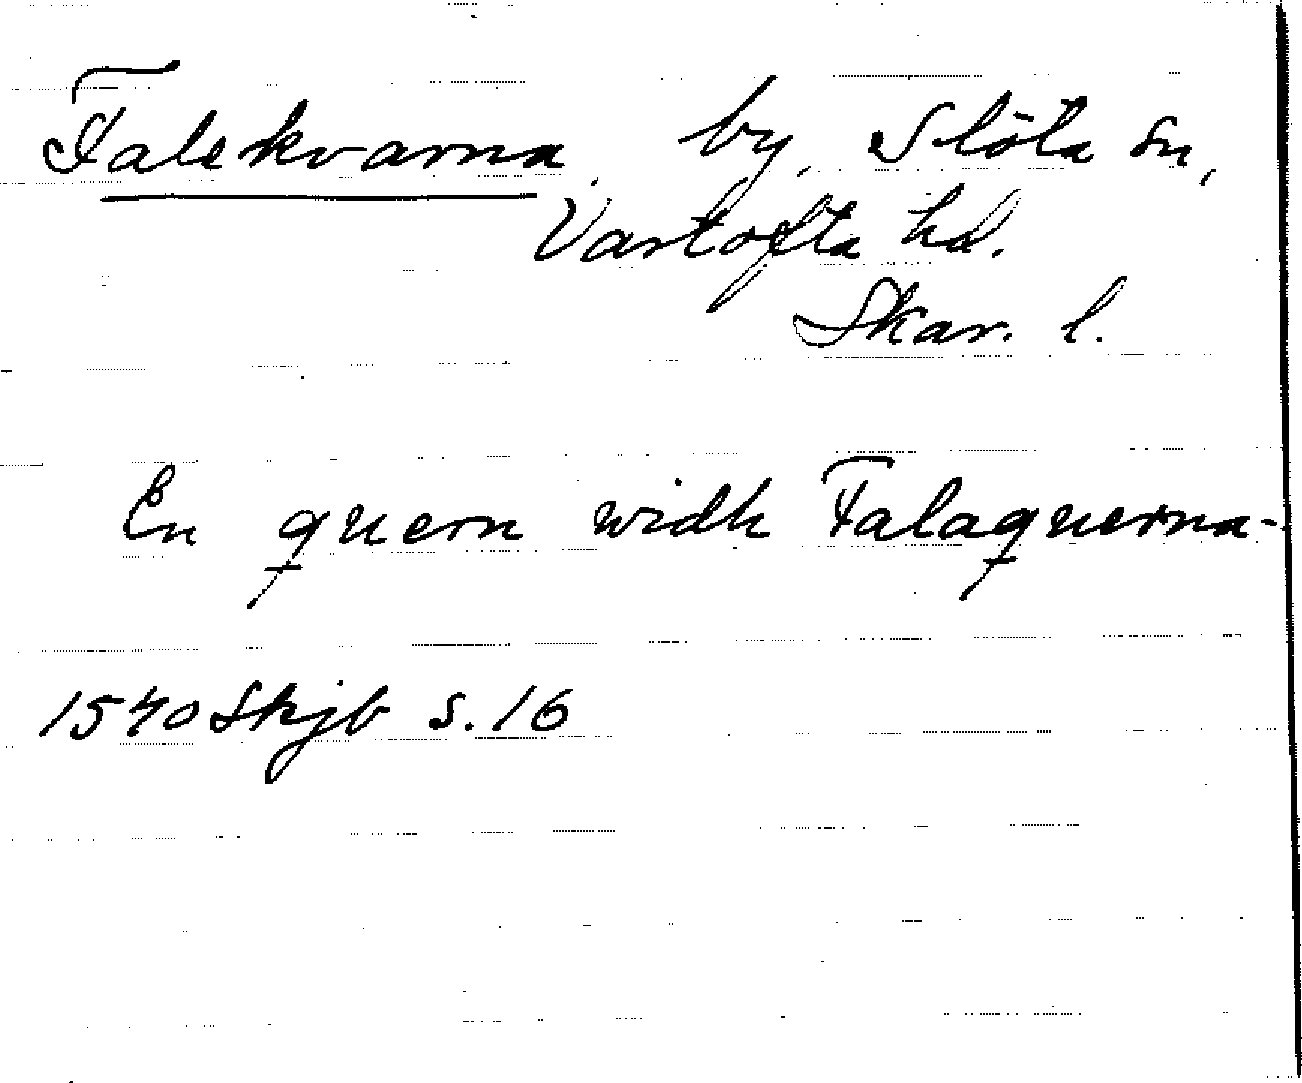 Falekvarna, by, Slöta sn,
Vartofta hd.
Skar. l.
En quern widh Falaquerna-
1540 Skjb s. 16